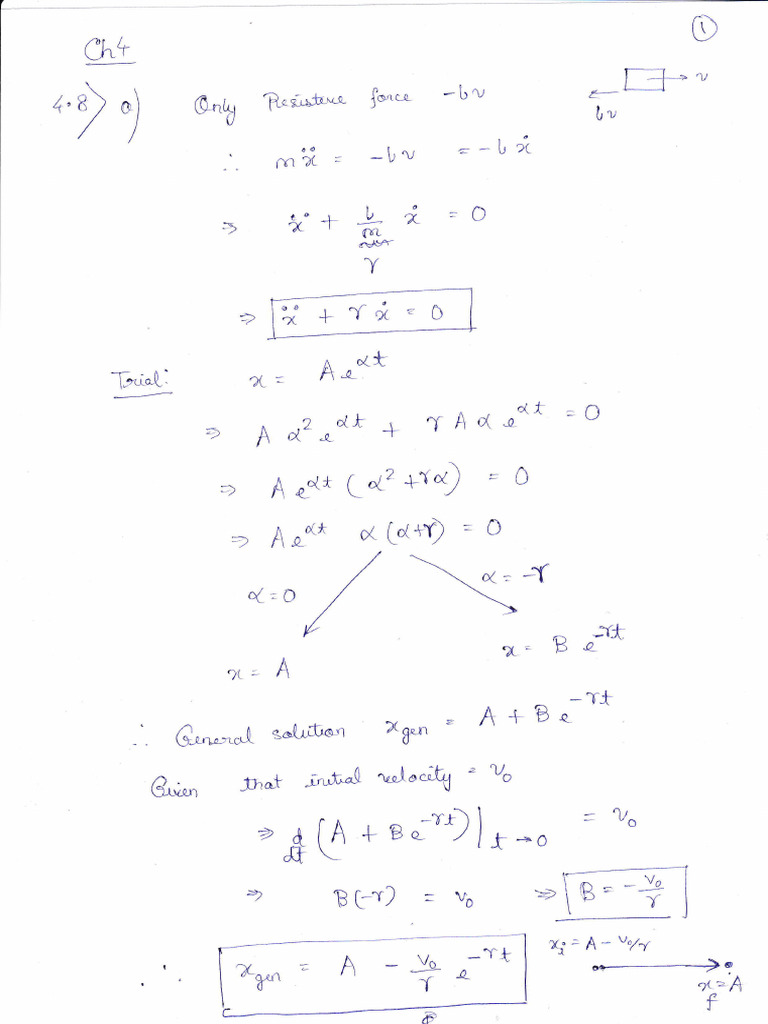 ①
Ch 4
4.8> a) Only Resistive force -bv
v
bv
∴ mẍ = -bv = -bẋ
⇒ ẍ + b/m ẋ = 0
γ
⇒ ẍ + γẋ = 0
Trial: x = Ae^{αt}
⇒ Aα²e^{αt} + γAαe^{αt} = 0
⇒ Ae^{αt}(α²+γα) = 0
⇒ Ae^{αt} α(α+γ) = 0
α=0
α=-γ
x = A
x = Be^{-γt}
∴ General solution x_gen = A + Be^{-γt}
Given that initial velocity = v₀
⇒ d/dt (A + Be^{-γt})|_{t→0} = v₀
⇒ B(-γ) = v₀ ⇒ B = -v₀/γ
∴ x_gen = A - v₀/γ e^{-γt}
x_i = A - v₀/γ
x_f = A